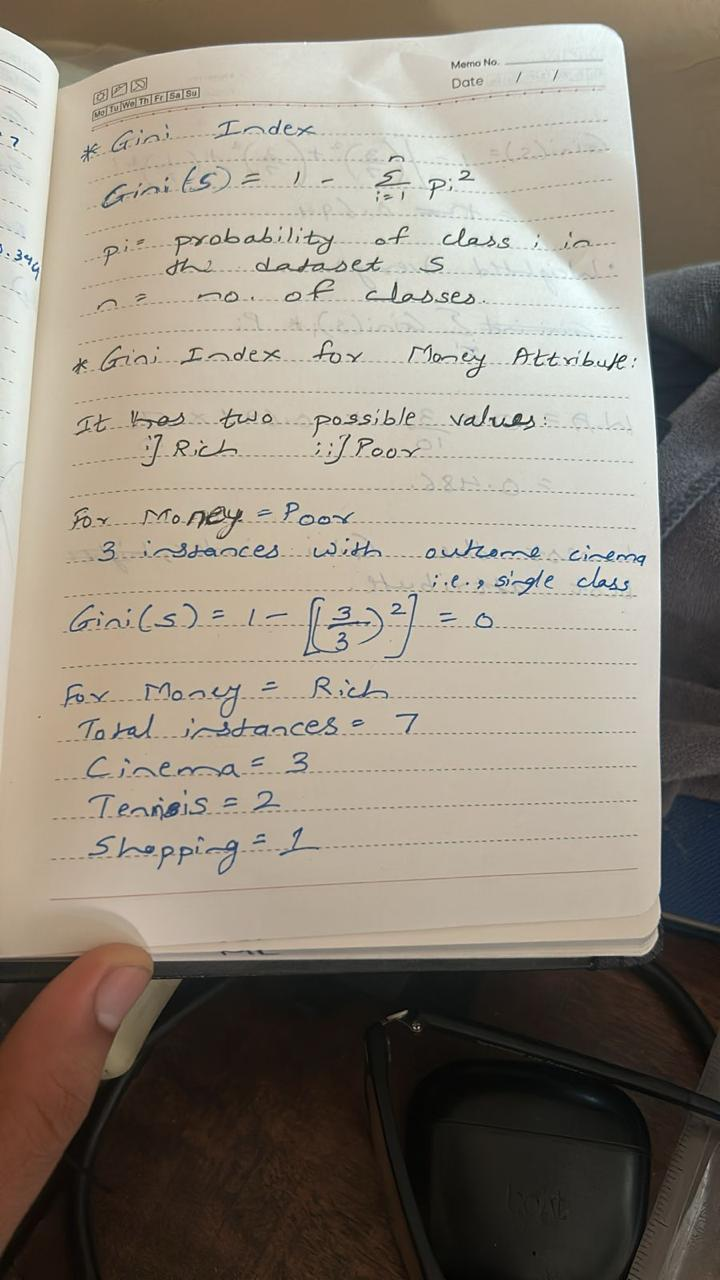 Memo No.
Date / /
Mo Tu We Th Fr Sa Su
* Gini Index
Gini(S) = 1 - n Σ i=1 pi²
pi = probability of class i in
the dataset S
n = no. of classes.
* Gini Index for Money Attribute:
It has two possible values:
i] Rich ii] Poor
For Money = Poor
3 instances with outcome cinema
i.e., single class
Gini(s) = 1 - [(3/3)²] = 0
For Money = Rich
Total instances = 7
Cinema = 3
Tennis = 2
Shopping = 1
boAt